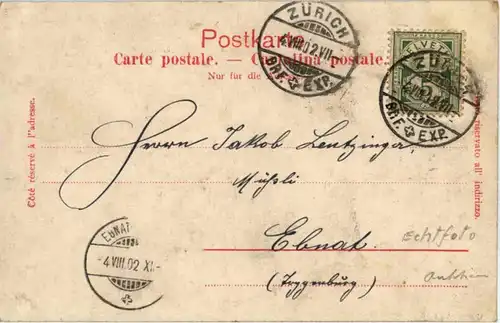 Postkarte.
Carte postale. — Cartolina postale.
Nur für die
Côté réservé à l'adresse.
riservato all' indirizzo.
ZÜRICH
4.VIII.02.VII-
BRF. EXP.
HELVETIA
ZÜRICH
BRF. EXP.
Herrn Jakob Lentzinger
Ebnat
(Toggenburg)
EBNAT
-4.VIII.02.XI-
Echtfoto